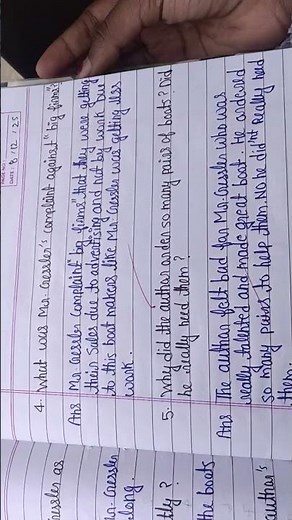 DATE: 8.12.25
4. What was Mr. Gessler's complaint against "big firms"?
Ans Mr Gessler complaint "big firms" that they were getting
their sales due to advertising and not by work but
to this boot makers like Mr. Gessler was getting less
work.
5. Why did the author order so many pairs of boots? Did
he really need them?
Ans The author felt bad for Mr. Gessler who was
really talented and made great boot. He ordered
so many pieces to help them. No he didn't really need
them.
Gessler as
Mr. Gessler
along.
tly?
the boots
author's